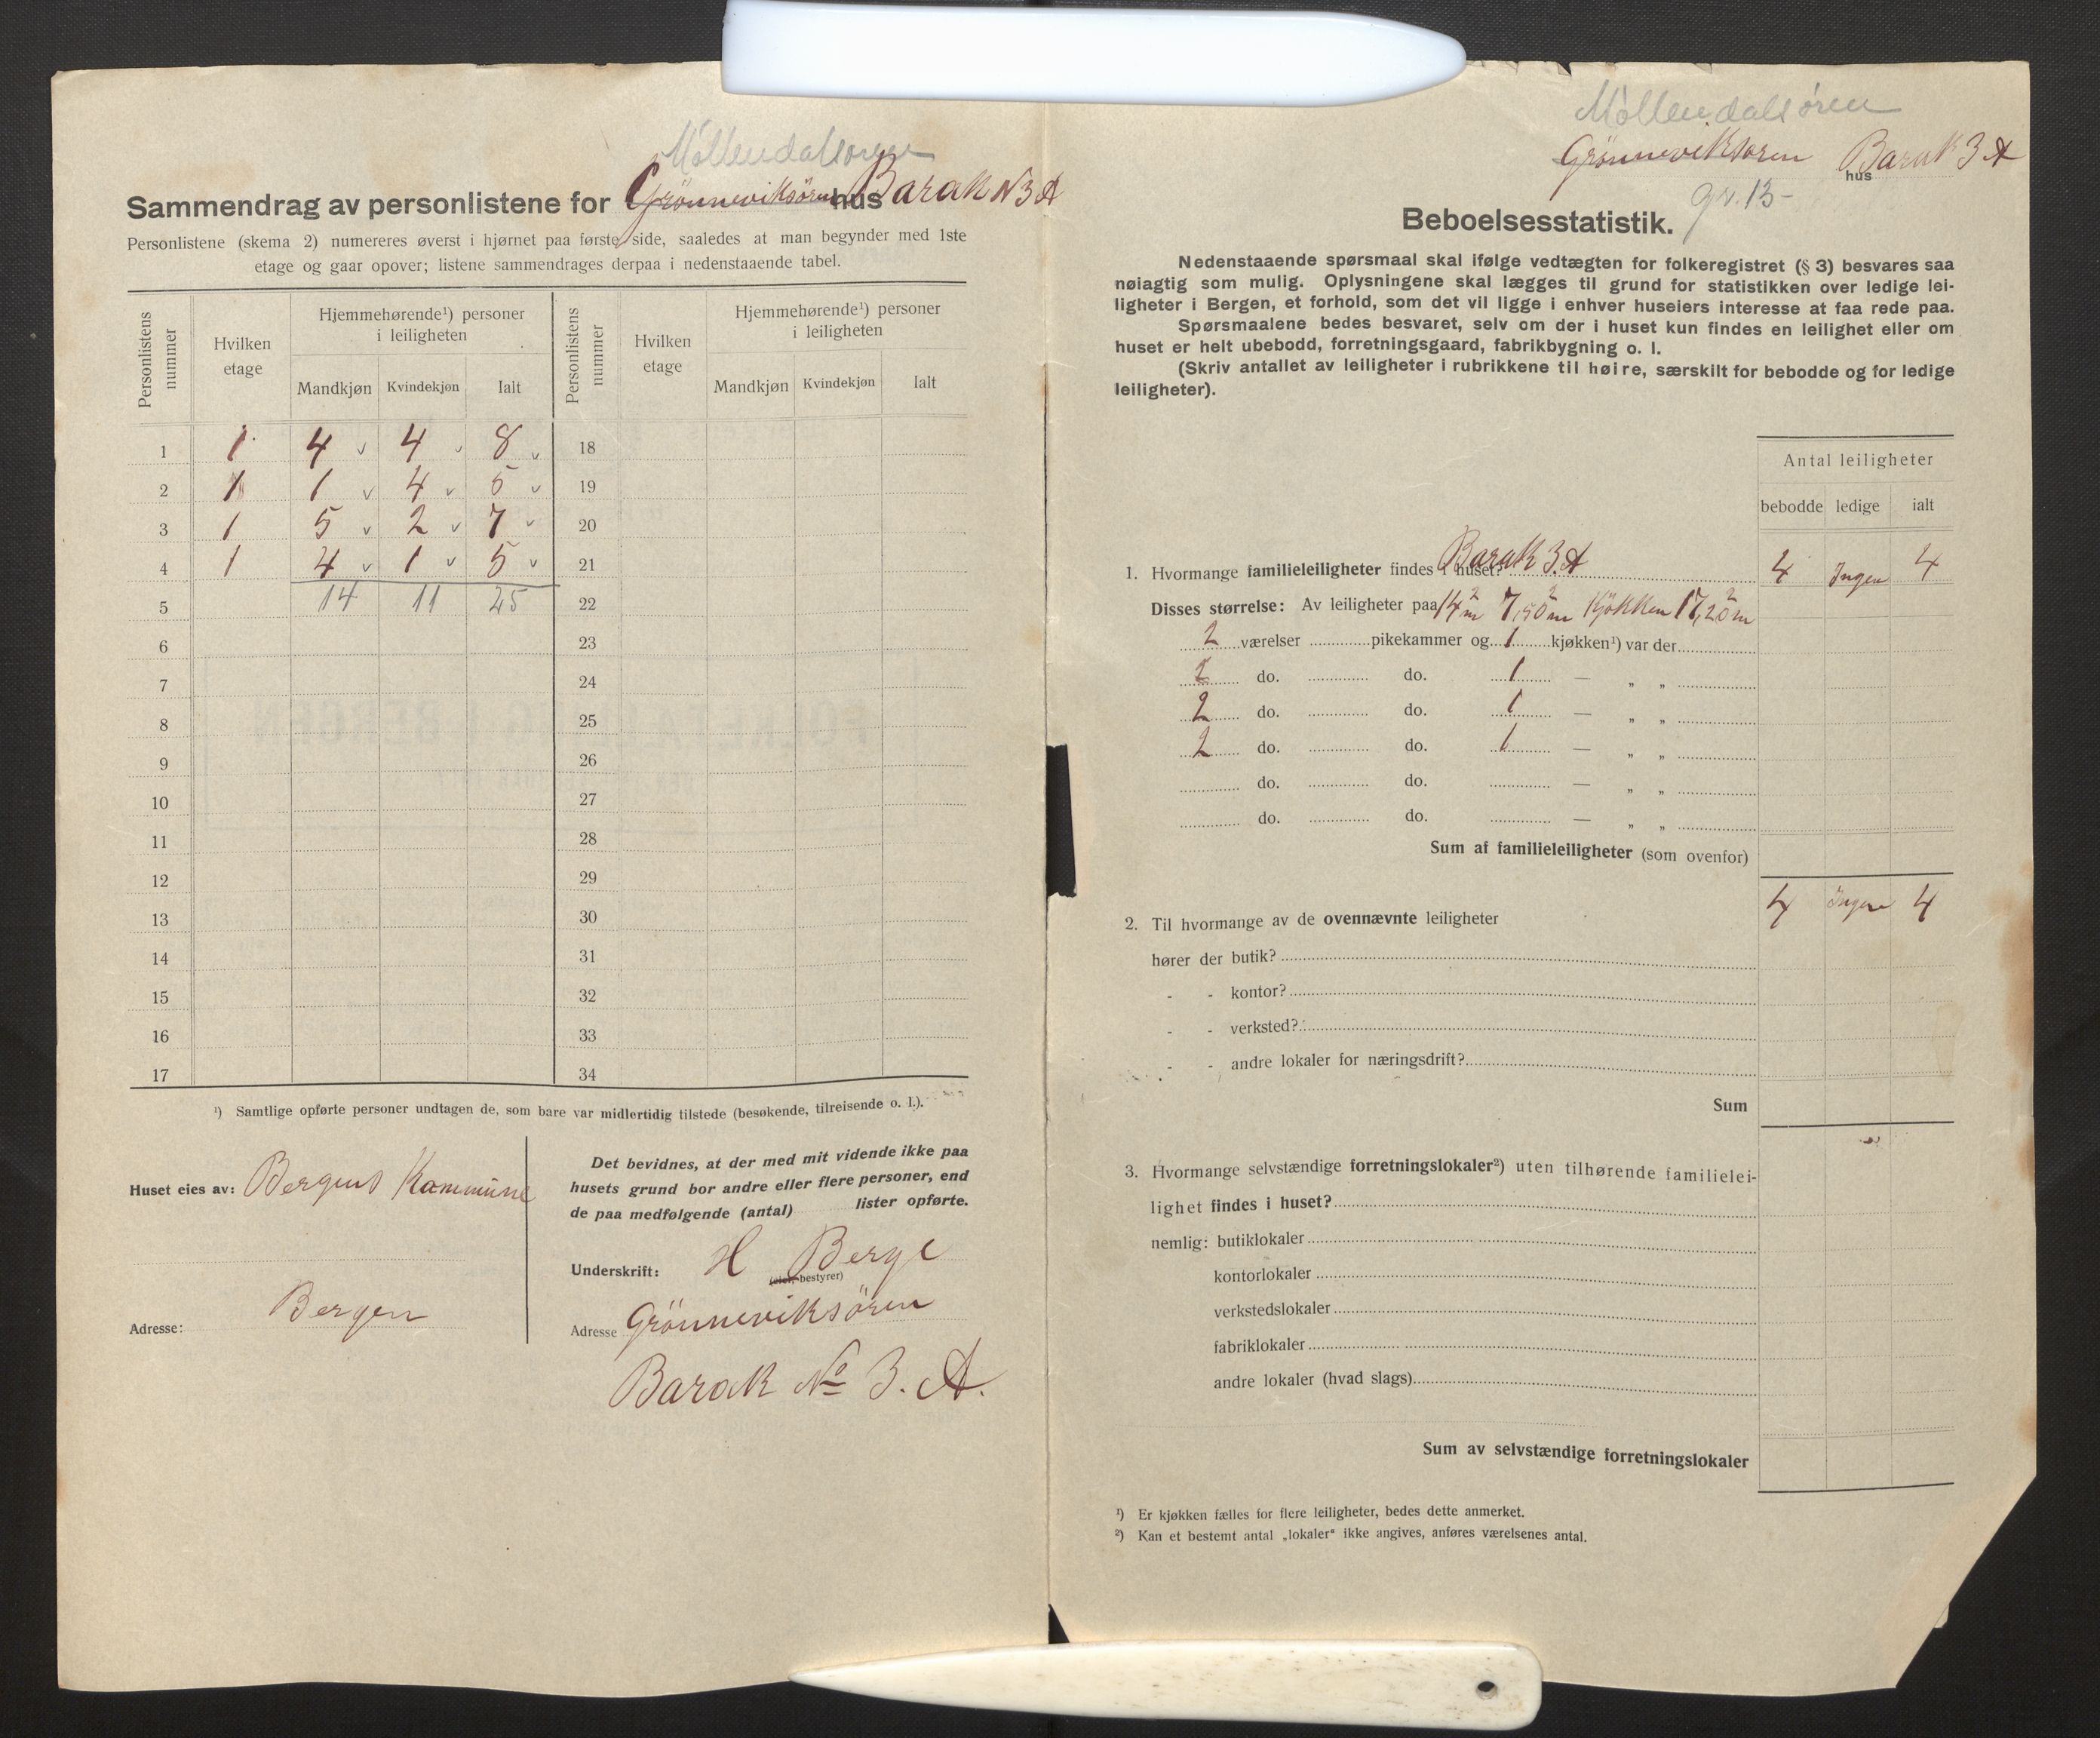 Møllendalsøren
Sammendrag av personlistene for Grönneviksören hus Barak N 3 A
Personlistene (skema 2) numereres øverst i hjørnet paa første side, saaledes at man begynder med 1ste
etage og gaar opover; listene sammendrages derpaa i nedenstaaende tabel.
Personlistens nummer | Hvilken etage | Hjemmehørende¹) personer i leiligheten | Personlistens nummer | Hvilken etage | Hjemmehørende¹) personer i leiligheten
Mandkjøn | Kvindekjøn | Ialt | Mandkjøn | Kvindekjøn | Ialt
1 | 1 | 4 v | 4 v | 8 v | 18
2 | 1 | 1 v | 4 v | 5 v | 19
3 | 1 | 5 v | 2 v | 7 v | 20
4 | 1 | 4 v | 1 v | 5 v | 21
5 | | 14 | 11 | 25 | 22
6 | 23
7 | 24
8 | 25
9 | 26
10 | 27
11 | 28
12 | 29
13 | 30
14 | 31
15 | 32
16 | 33
17 | 34
¹) Samtlige opførte personer undtagen de, som bare var midlertidig tilstede (besøkende, tilreisende o. l.).
Huset eies av: Bergens Kommune
Adresse: Bergen
Det bevidnes, at der med mit vidende ikke paa
husets grund bor andre eller flere personer, end
de paa medfølgende (antal) lister opførte.
Underskrift: H Berge
(eier, bestyrer)
Adresse Grönneviksören
Barak No 3. A.
Møllendalsøren
Grönneviksören hus Barak 3 A
gr. 13-
Beboelsesstatistik.
Nedenstaaende spørsmaal skal ifølge vedtægten for folkeregistret (§ 3) besvares saa
nøiagtig som mulig. Oplysningene skal lægges til grund for statistikken over ledige lei-
ligheter i Bergen, et forhold, som det vil ligge i enhver huseiers interesse at faa rede paa.
Spørsmaalene bedes besvaret, selv om der i huset kun findes en leilighet eller om
huset er helt ubebodd, forretningsgaard, fabrikbygning o. l.
(Skriv antallet av leiligheter i rubrikkene til høire, særskilt for bebodde og for ledige
leiligheter).
Antal leiligheter
bebodde | ledige | ialt
1. Hvormange familieleiligheter findes i huset? Barak 3. A | 4 | Ingen | 4
Disses størrelse: Av leiligheter paa 14 m² 7,50 m² Kjøkken 17,20 m²
2 værelser pikekammer og 1 kjøkken¹) var der
2 do. do. 1 — „ „
2 do. do. 1 — „ „
2 do. do. 1 — „ „
do. do. — „ „
do. do. — „ „
Sum af familieleiligheter (som ovenfor)
4 | Ingen | 4
2. Til hvormange av de ovennævnte leiligheter
hører der butik?
- - kontor?
- - verksted?
- - andre lokaler for næringsdrift?
Sum
3. Hvormange selvstændige forretningslokaler²) uten tilhørende familielei-
lighet findes i huset?
nemlig: butiklokaler
kontorlokaler
verkstedslokaler
fabriklokaler
andre lokaler (hvad slags)
Sum av selvstændige forretningslokaler
¹) Er kjøkken fælles for flere leiligheter, bedes dette anmerket.
²) Kan et bestemt antal „lokaler“ ikke angives, anføres værelsenes antal.